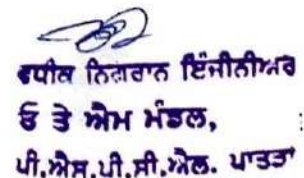 ਵਧੀਕ ਨਿਗਰਾਨ ਇੰਜੀਨੀਅਰ
ਓ ਤੇ ਐਮ ਮੰਡਲ,
ਪੀ.ਐਸ.ਪੀ.ਸੀ.ਐਲ. ਪਾਤੜਾਂ